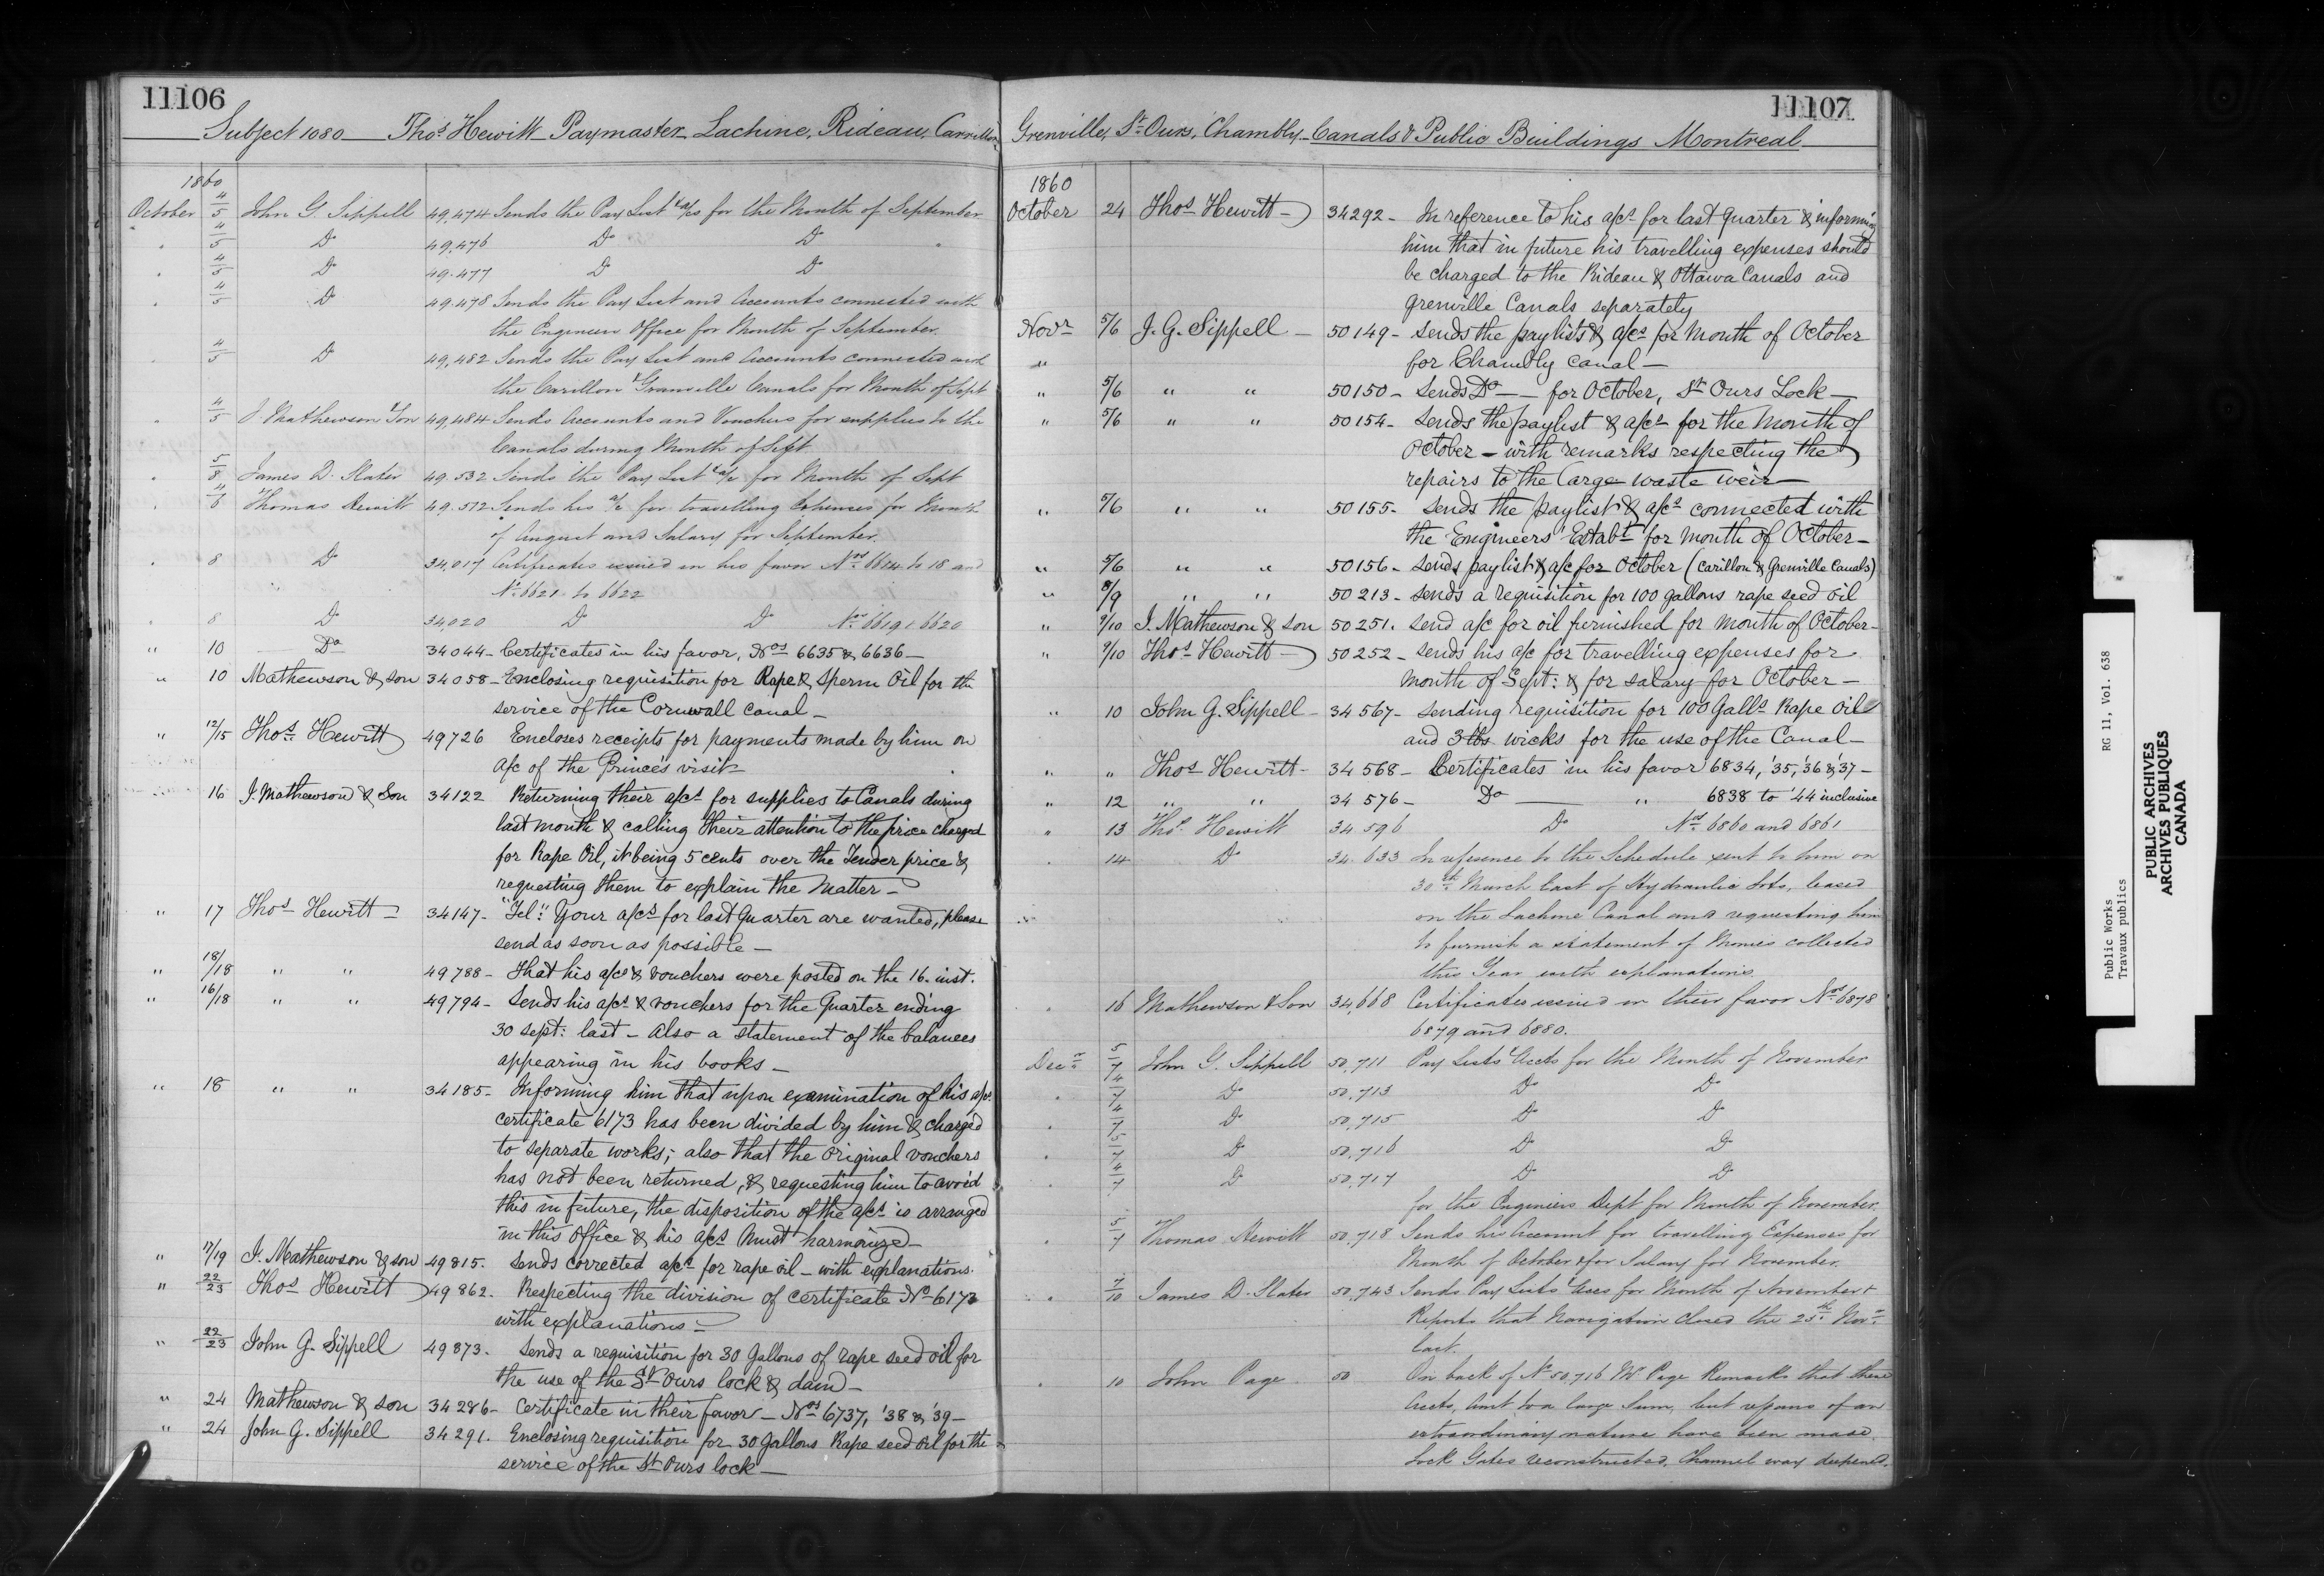 11106
Subject 1080 Thos Hewitt Paymaster Lachine, Rideau, Carrillon
1860
October 4/5 John G. Sippell 49,474 Sends the Pay List & a/cs for the Month of September
" 4/5 Do 49,476 Do Do "
" 4/5 Do 49,477 Do Do
" 4/5 Do 49,478 Sends the Pay List and Accounts connected with
the Engineer Office for Month of September.
" 4/5 Do 49,482 Sends the Pay List and Accounts connected with
the Carillon & Granville Canals for Month of Sept
" 4/5 J. Mathewson & Son 49,484 Sends Accounts and Vouchers for supplies to the
Canals during Month of Sept
" 5/8 James D. Slater 49,532 Sends the Pay List & a/c for Month of Sept
" Thomas Hewitt 49,572 Sends his a/c for travelling Expenses for Month
of August and Salary for September.
" 8 Do 34,017 Certificates issued in his favor Nos 6614 to 18 and
No 6621 to 6622
8 Do 34,020 Do Do Nos 6619 & 6620
" 10 Do 34044 - Certificates in his favor, Nos 6635 & 6636 -
" 10 Mathewson & son 34058 - Enclosing requisition for Rape & Sperm Oil for the
service of the Cornwall Canal -
" 12/15 Thos Hewitt 49726 Encloses receipts for payments made by him on
a/c of the Prince's visit -
16 J. Mathewson & Son 34122 Returning their a/cs for supplies to Canals during
last month & calling their attention to the price charged
for Rape Oil, it being 5 cents over the Tender price &
requesting them to explain the Matter -
" 17 Thos Hewitt - 34147 - "Tel." Your a/cs for last Quarter are wanted, please
send as soon as possible -
" 18/18 " " 49788 - That his a/cs & vouchers were posted on the 16. inst.
" 16/18 " " 49794 - Sends his a/cs & vouchers for the Quarter ending
30 Sept: last - Also a statement of the balances
appearing in his books -
" 18 " " 34185 - Informing him that upon examination of his a/cs
certificate 6173 has been divided by him & charged
to separate works; also that the original vouchers
has not been returned, & requesting him to avoid
this in future, the disposition of the a/cs is arranged
in this Office & his a/cs Must harmonize -
" 17/19 J. Mathewson & son 49815. Sends corrected a/cs for rape oil - with explanations.
" 22/23 Thos Hewitt 49862. Respecting the division of certificate No 6173
with explanations -
" 22/23 John G. Sippell 49873. Sends a requisition for 30 Gallons of rape seed oil for
the use of the St Ours lock & dam -
" 24 Mathewson & son 34286 - Certificate in their favor - Nos 6737, '38 & '39 -
" 24 John G. Sippell 34291. Enclosing requisition for 30 Gallons Rape seed oil for the
service of the St Ours lock -
11107
Grenville, St Ours, Chambly - Canals & Public Buildings Montreal
1860
October 24 Thos Hewitt - 34292 - In reference to his a/cs for last Quarter & informing
him that in future his travelling expenses should
be charged to the Rideau & Ottawa Canals and
Grenville Canals separately
Novr 5/6 J. G. Sippell - 50149 - Sends the paylists & a/cs for Month of October
" for Chambly canal -
" 5/6 " " 50150 - Sends Do - - for October, St Ours Lock -
" 5/6 " " 50154 - Sends the paylist & a/cs for the Month of
October - with remarks respecting the
repairs to the Large waste weir -
" 5/6 " " 50155 - Sends the paylist & a/cs connected with
the Engineers' Estabt for Month of October -
" 5/6 " " 50156 - Sends paylist & a/c for October (Carillon & Grenville Canals)
" 8/9 " " 50213 - Sends a requisition for 100 gallons rape seed oil
" 9/10 J. Mathewson & son 50251. Send a/c for oil furnished for month of October -
" 9/10 Thos Hewitt - 50252 - Sends his a/c for travelling expenses for
month of Sept: & for salary for October -
" 10 John G. Sippell - 34567 - Sending requisition for 100 Galls Rape oil
and 3 lbs wicks for the use of the Canal -
" " Thos Hewitt - 34568 - Certificates in his favor 6834, '35, '36 & '37 -
" 12 " " 34576 - Do " 6838 to '44 inclusive
" 13 Thos Hewitt 34596 Do Nos 6860 and 6861
" 14 Do 34,633 In reference to the Schedule sent to him on
30th March last of Hydraulic Lots, leased
on the Lachine Canal and requesting him
to furnish a statement of Monies collected
this Year with explanations
" 16 Mathewson & Son 34,668 Certificates issued in their favor Nos 6878
6879 and 6880.
Decr 5/7 John G. Sippell 50,711 Pay Lists & Accts for the Month of November
" 4/7 Do 50,713 Do Do
" 4/7 Do 50,715 Do Do
" 5/7 Do 50,716 Do Do
" 4/7 Do 50,717 Do Do
for the Engineers Dept for Month of November.
" 5/7 Thomas Hewitt 50,718 Sends his Account for travelling Expenses for
Month of October & for Salary for November.
" 7/10 James D. Slater 50,743 Sends Pay Lists & Accs for Month of November &
Reports that Navigation closed the 25th Novr
last.
" 10 John Page 50 On back of No 50,716 Mr Page Remarks that these
Accts, Amt to a large Sum, but repairs of an
extraordinary nature have been made.
Lock Gates reconstructed, Channel way deepened.
Public Works RG 11, Vol. 638
Travaux publics
PUBLIC ARCHIVES
ARCHIVES PUBLIQUES
CANADA